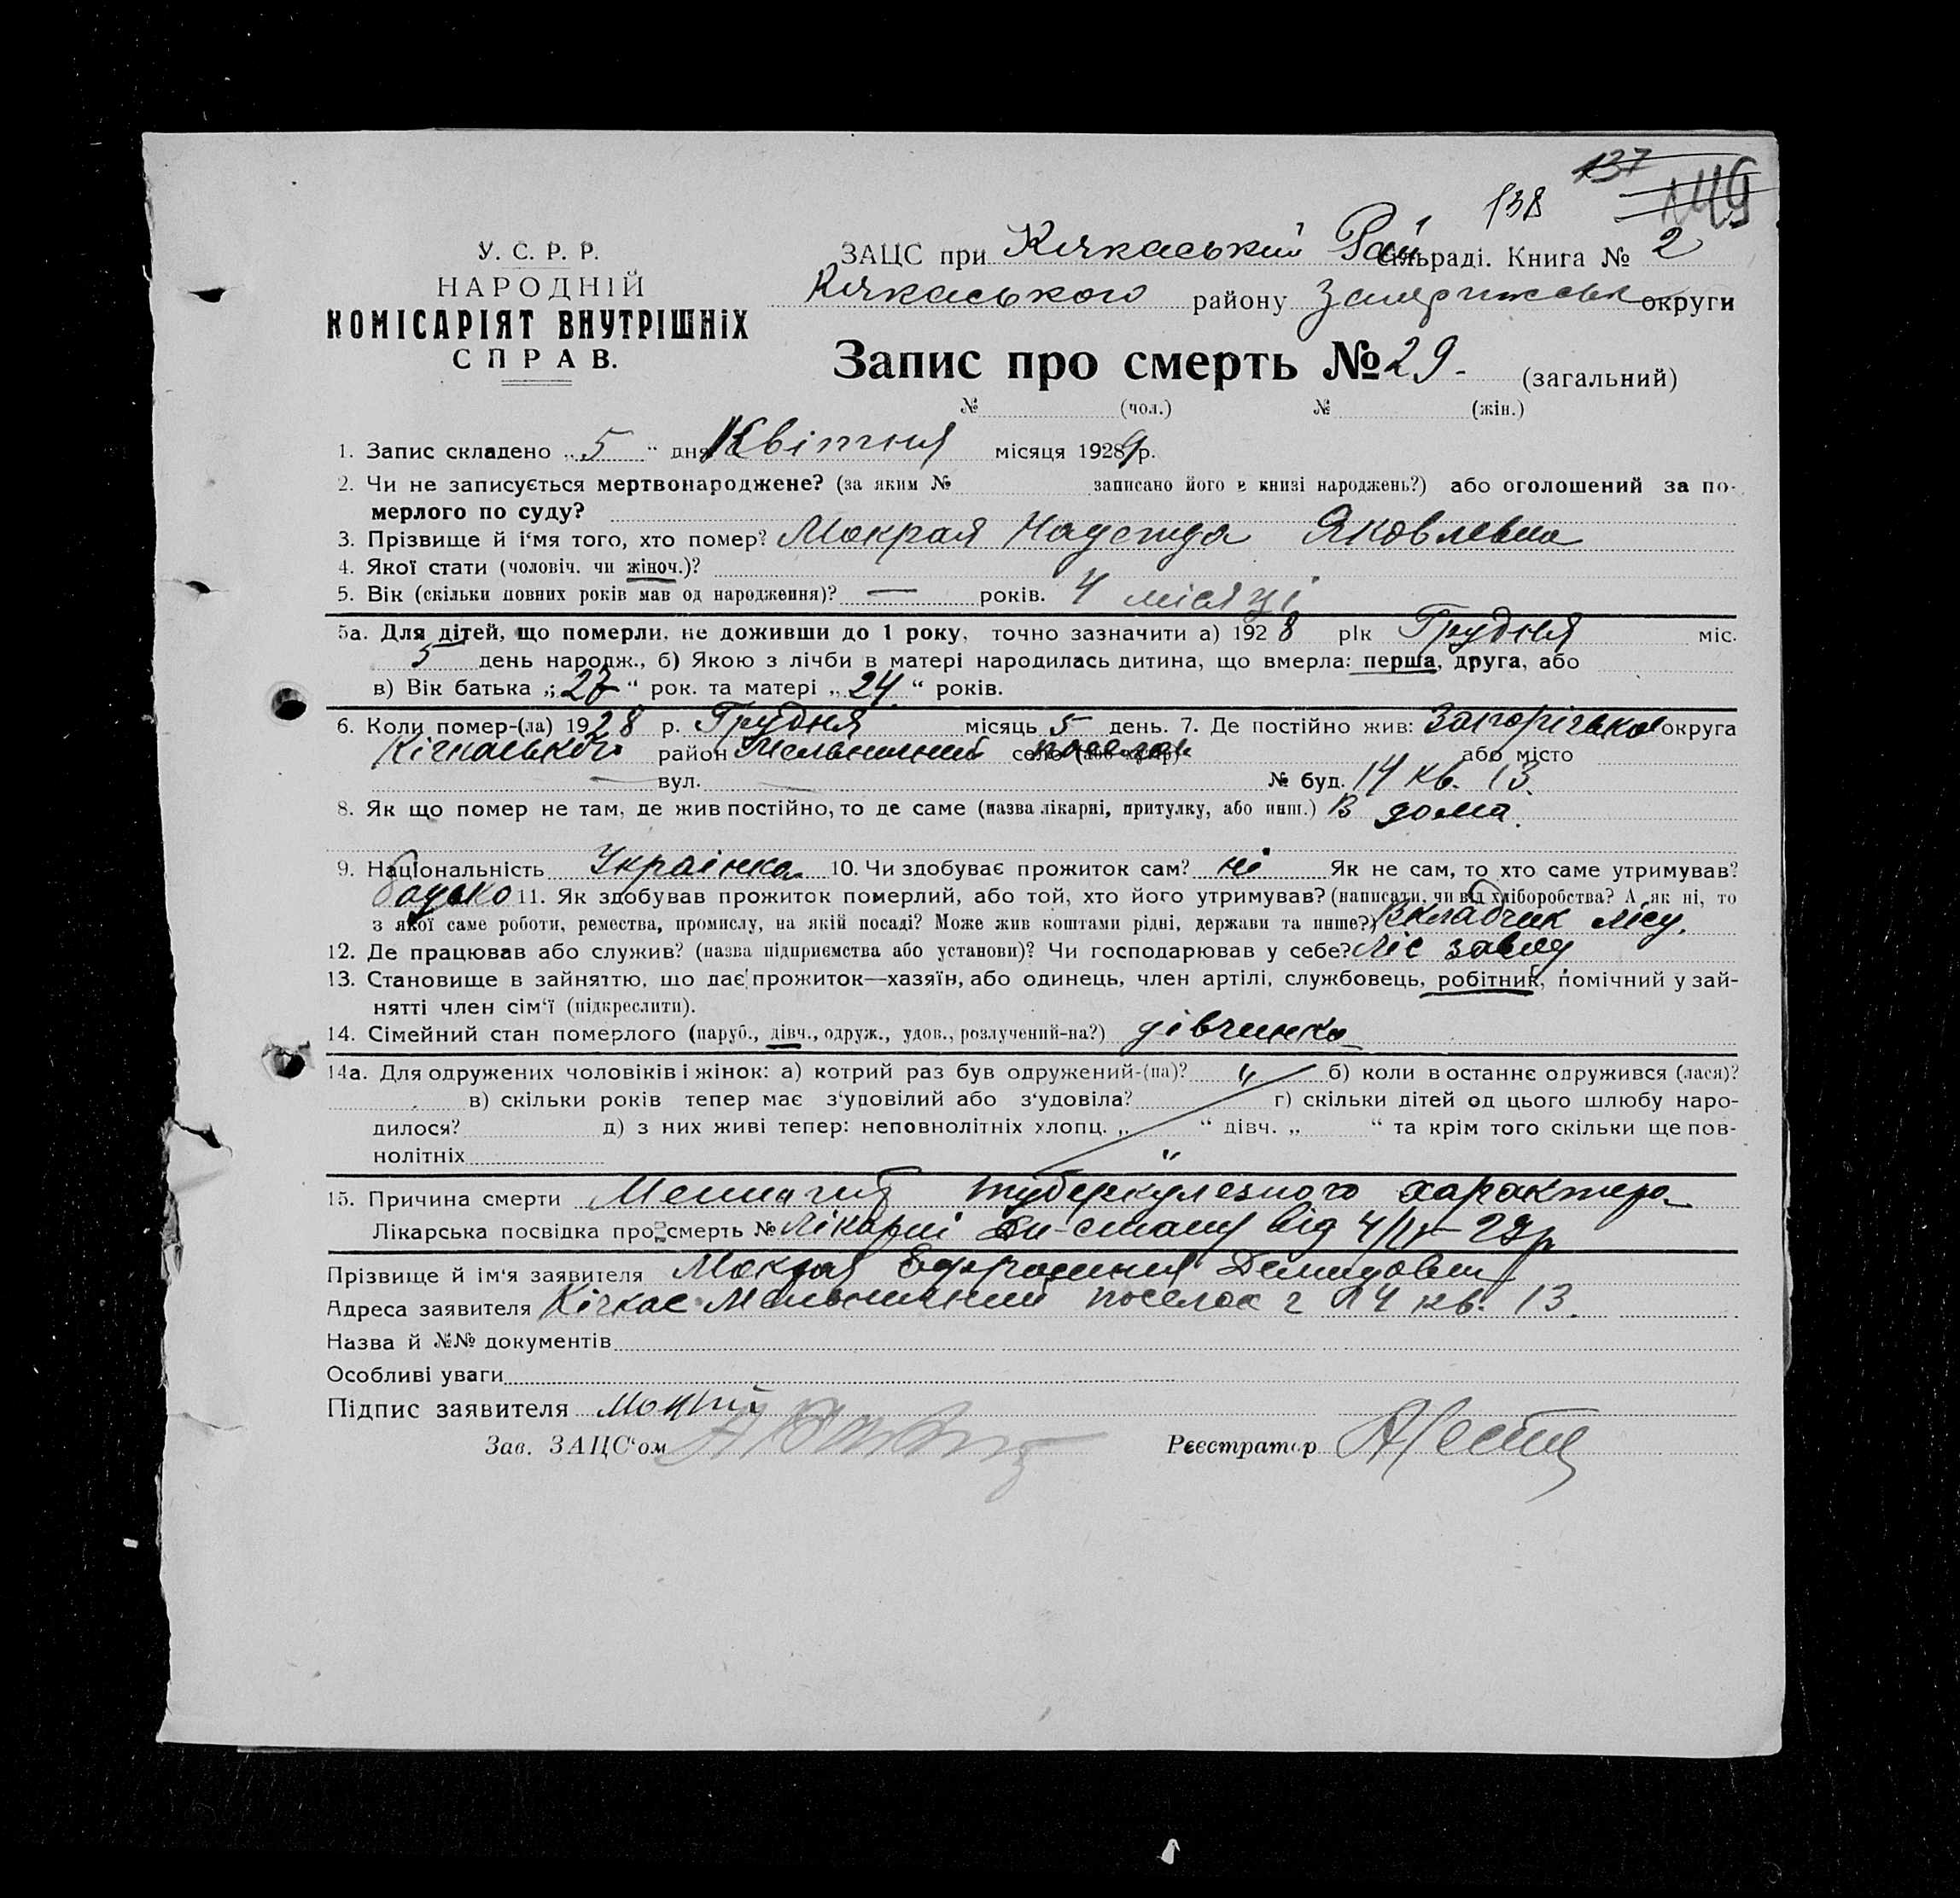 137
138 149
У. С. Р. Р.
НАРОДНІЙ
КОМІСАРІЯТ ВНУТРІШНІХ
СПРАВ.
ЗАЦС при Кічкаський Рай Сільраді. Книга № 2
Кічкаського району Запоріжськ округи
Запис про смерть № 29. (загальний)
№ (чол.) № (жін.)
1. Запис складено „5“ дня Квітня місяця 1929 р.
2. Чи не записується мертвонароджене? (за яким № записано його в книзі народжень?) або оголошений за по-
мерлого по суду?
3. Прізвище й і'мя того, хто помер? Мокрая Надежда Яковлевна
4. Якої стати (чоловіч. чи жіноч.)?
5. Вік (скільки повних років мав од народження)? — років. 4 місяці
5а. Для дітей, що померли, не доживши до 1 року, точно зазначити а) 1928 рік Грудня міс.
5 день народж., б) Якою з лічби в матері народилась дитина, що вмерла: перша, друга, або
в) Вік батька „27“ рок. та матері „24“ років.
6. Коли помер-(ла) 1928 р. Грудня місяць 5 день. 7. Де постійно жив: Запорізької округа
Кічкаського район Мельничний село (або хутір) поселок або місто
— вул. — № буд. 14 кв. 13.
8. Як що помер не там, де жив постійно, то де саме (назва лікарні, притулку, або инш.) В дома.
9. Національність Українка 10. Чи здобуває прожиток сам? ні Як не сам, то хто саме утримував?
батько 11. Як здобував прожиток померлий, або той, хто його утримував? (написати, чи від хліборобства? А як ні, то
з якої саме роботи, ремества, промислу, на якій посаді? Може жив коштами рідні, держави та инше?) Вкладчик лісу.
12. Де працював або служив? (назва підприємства або установи)? Чи господарював у себе? Ліс завод
13. Становище в зайняттю, що дає прожиток—хазяїн, або одинець, член артілі, службовець, робітник, помічний у зай-
нятті член сім'ї (підкреслити).
14. Сімейний стан померлого (паруб., дівч., одруж., удов., розлучений-на?) дівчинка
14а. Для одружених чоловіків і жінок: а) котрий раз був одружений-(на)? „ б) коли в останнє одружився (лася)?
в) скільки років тепер має з'удовілий або з'удовіла? г) скільки дітей од цього шлюбу наро-
дилося? д) з них живі тепер: неповнолітніх хлопц. „ “ дівч. „ “ та крім того скільки ще пов-
нолітніх „
15. Причина смерти Менингит туберкулезного характера
Лікарська посвідка про смерть № Лікарні від 4/IV-29р
Прізвище й ім'я заявителя Мокрая Ефросиния Демидовна
Адреса заявителя Кічкас Мельничний поселок 14 кв. 13.
Назва й №№ документів
Особливі уваги
Підпис заявителя
Зав. ЗАЦС'ом Реєстратор